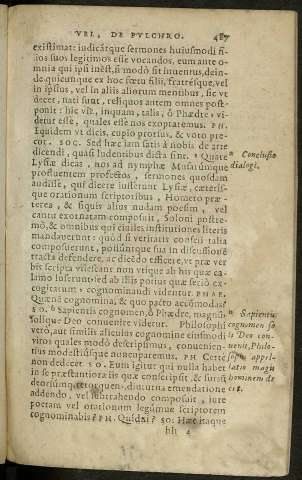 VEL, DE PVLCHRO. 487
existimat: iudicatque sermones huiusmodi fi-
lios suos legitimos esse vocandos, eum ante o-
mnia qui ipsi inest, si modò sit inuentus, dein-
de quicunque ex hoc satu filii, fratresque, vel
in ipsius, vel in aliis aliorum mentibus, sic vt
decet, nati sunt, reliquos autem omnes post-
ponit: hic vir, inquam, talis, ô Phædre, vi-
detur esse, quales esse nos exoptaremus. PH.
Equidem vt dicis, cupio prorsus, & voto pre-
cor. SO. Sed hæc iam satis à nobis de arte
dicendi, quasi ludentibus dicta sint. Quare
Lysiæ dicas, nos ad nymphæ Musarúmque
profluentem profectos, sermones quosdam
audisse, qui dicere iusserunt Lysiæ, cæterís-
que orationum scriptoribus, Homero præ-
terea, & siquis alius nudam poesim, vel
cantu exornatam composuit, Soloni postre-
mò, & omnibus qui ciuiles institutiones literis
mandauerunt: quòd si veritatis conscii talia
composuerunt, possúntque sua in discussione
tractata defendere, ac dicendo efficere, vt præ ver-
bis scripta vilescant: non vtique ab his quæ ca-
lamo luserunt, sed ab illis potius quæ seriò ex-
cogitarunt, cognominandi videntur. PHAE.
Quænam cognomina, & quo pacto accommodas?
SO. Sapientis cognomen, ô Phædre, magnum,
solíque Deo conuenire videtur. Philosophi
verò, aut similis alicuius cognomine eiusmodi
viros quales modò descripsimus, & conuenien-
tius modestiúsque nuncuparemus. PH. Certè
non dedecet. SO. Eum igitur qui nulla habet
in se præstantiora iis quæ conscripsit, & sursum
deorsúmque torquens, diuturna emendatione
addendo, vel subtrahendo composuit, iure
poetam vel orationum legúmue scriptorem
cognominabis? PH. Quidni? SO. Hæc itaque
hh 4
Conclusio
dialogi.
Sapientis
cognomen so-
li Deo con-
uenit, Philo-
sophi appel-
latio magis
hominem de-
cet.